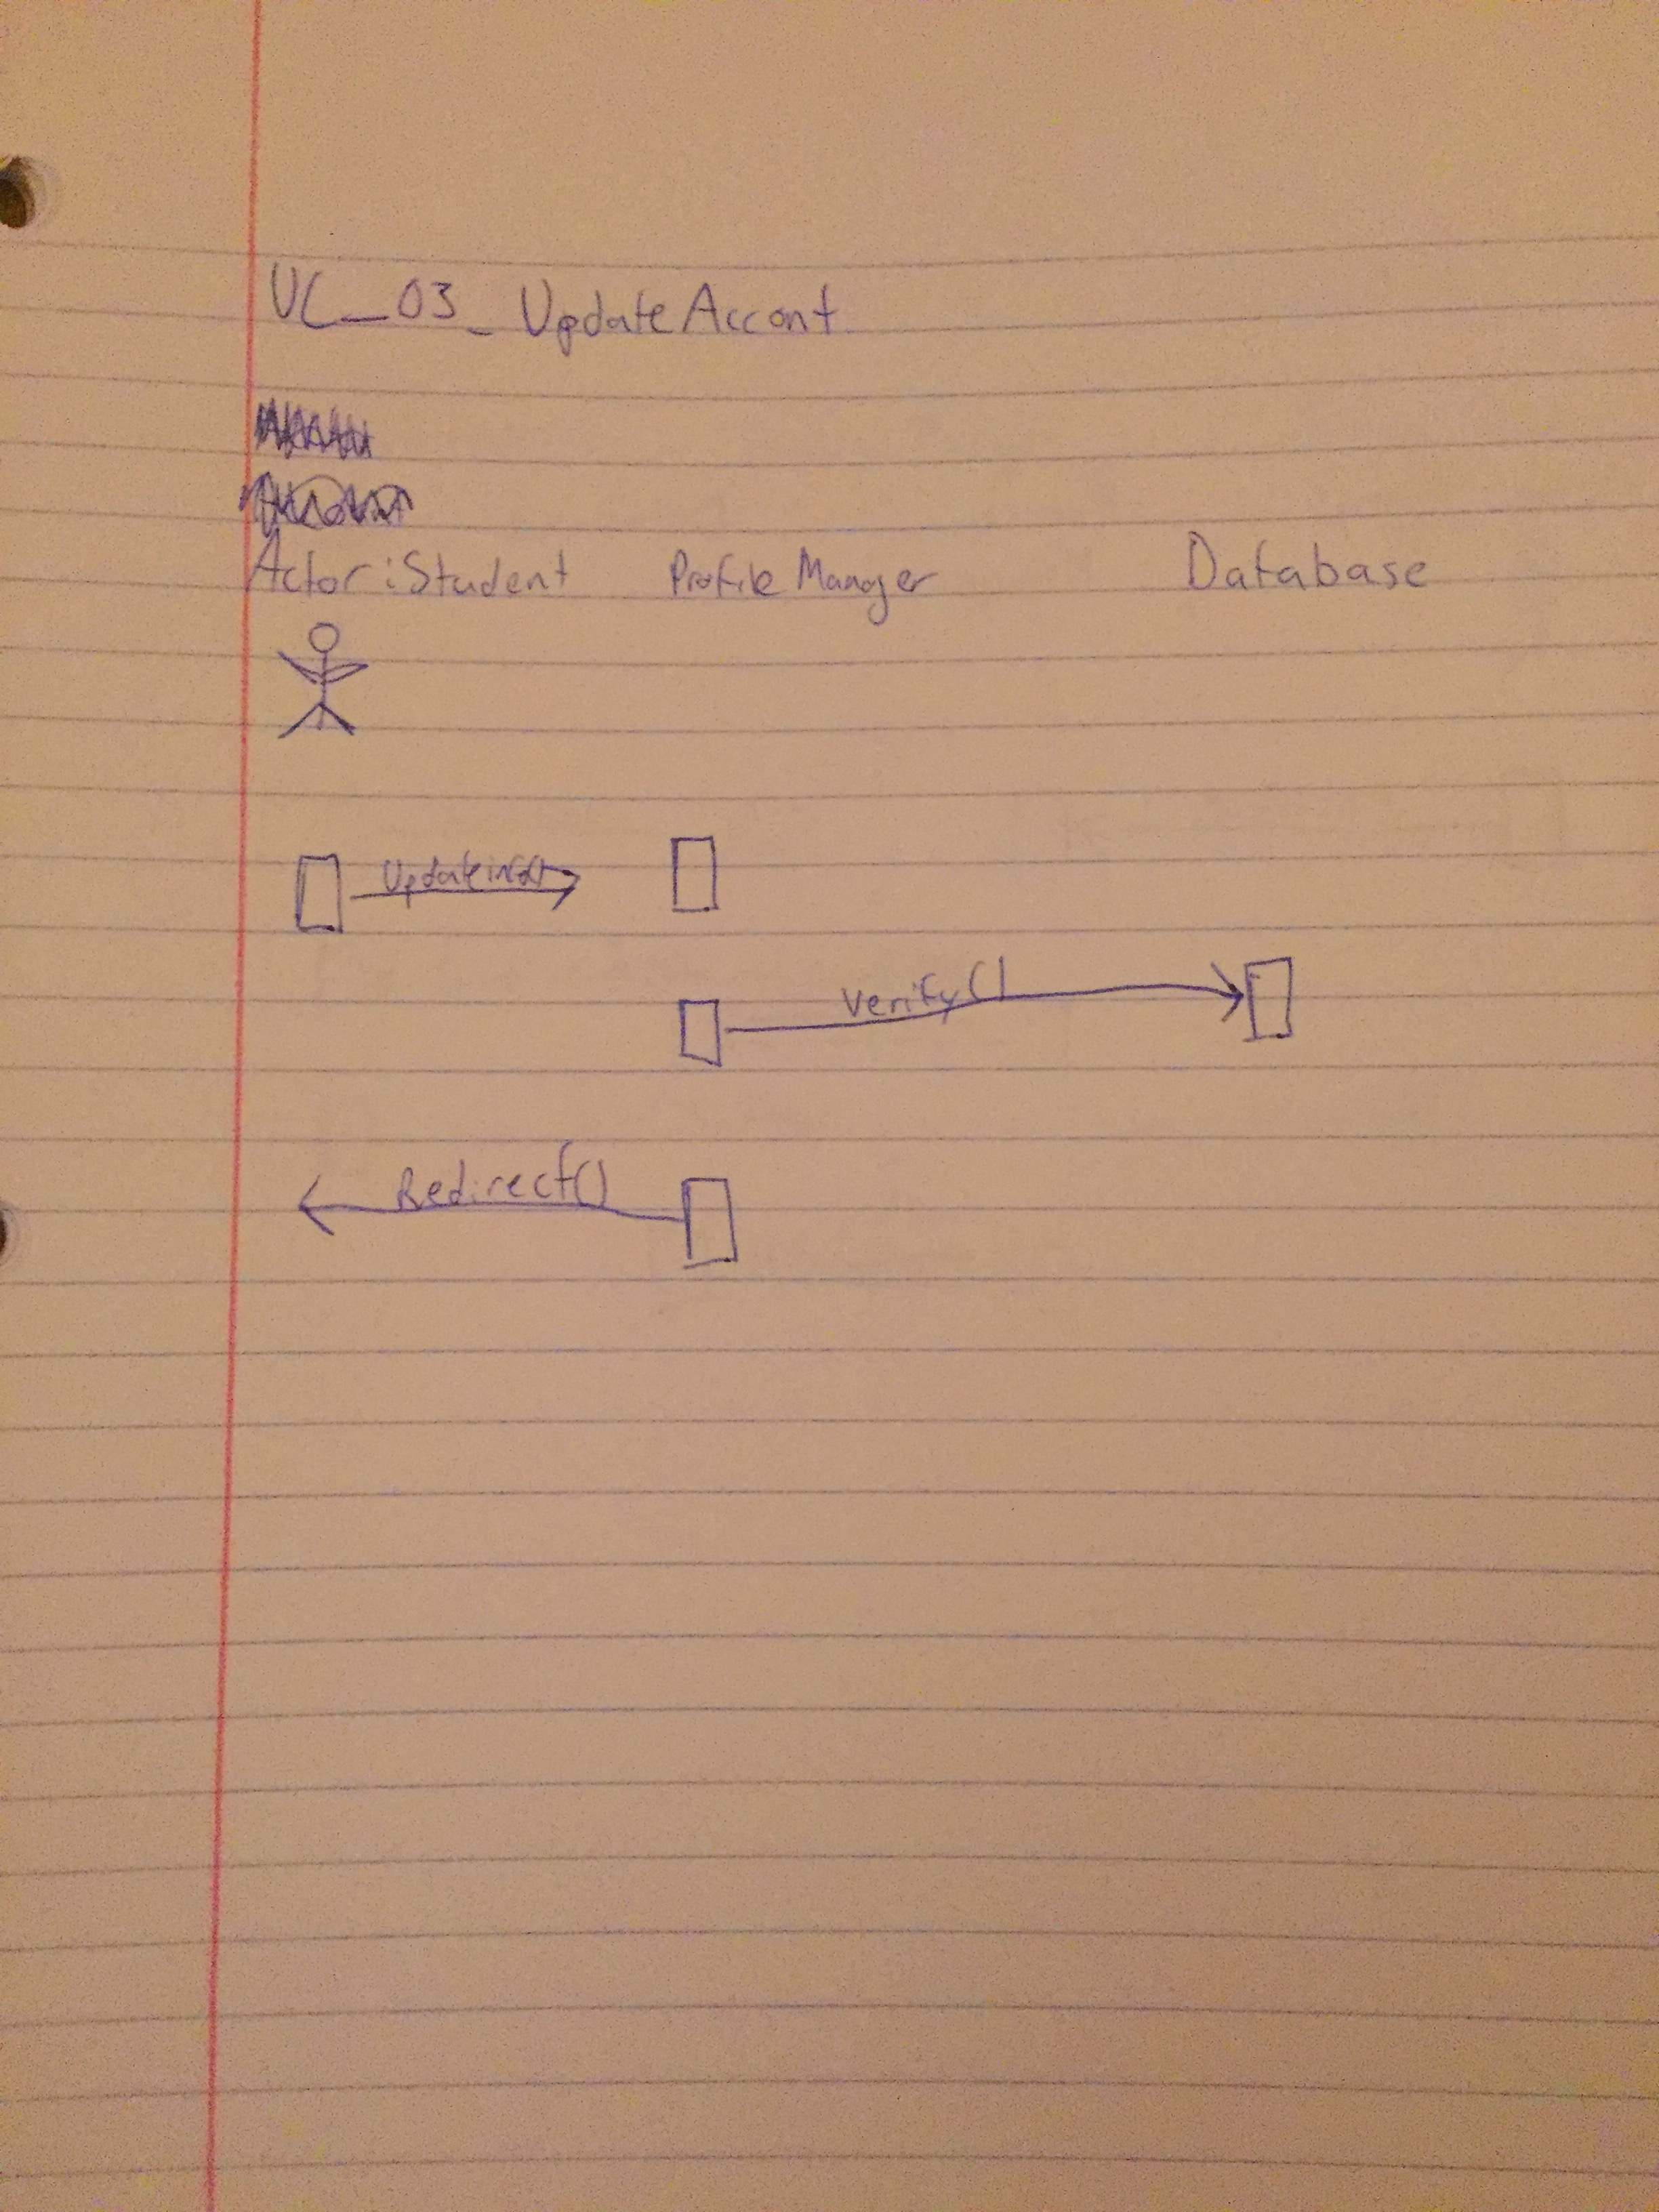 UC_03_UpdateAccont
Actor:Student Profile Manager Database
Updateinfo()
Verify()
Redirect()